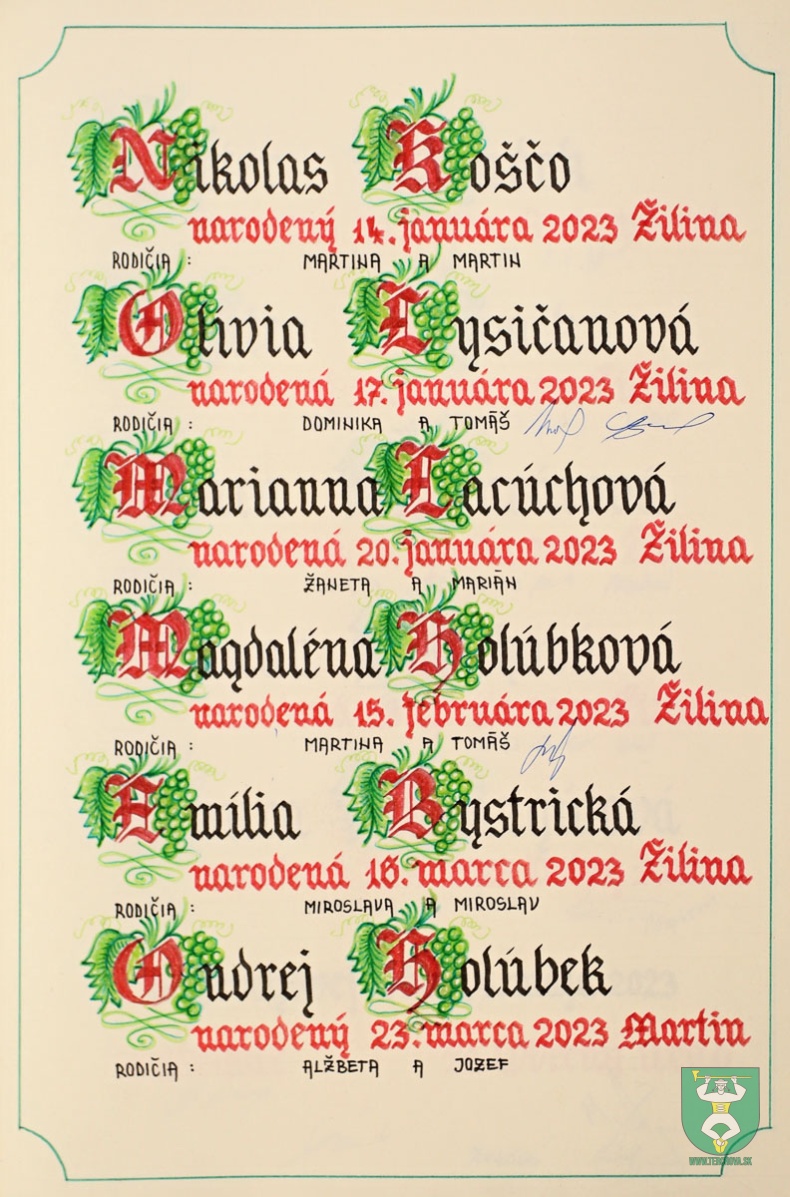 Nikolas Koščo
narodený 14. januára 2023 Žilina
RODIČIA : MARTINA A MARTIN
Olívia Lysičanová
narodená 17. januára 2023 Žilina
RODIČIA : DOMINIKA A TOMÁŠ
Marianna Lacúchová
narodená 20. januára 2023 Žilina
RODIČIA : ŽANETA A MARIÁN
Magdaléna Holúbková
narodená 15. februára 2023 Žilina
RODIČIA : MARTINA A TOMÁŠ
Emília Bystrická
narodená 16. marca 2023 Žilina
RODIČIA : MIROSLAVA A MIROSLAV
Ondrej Holúbek
narodený 23. marca 2023 Martin
RODIČIA : ALŽBETA A JOZEF
WWW.TERCHOVA.SK